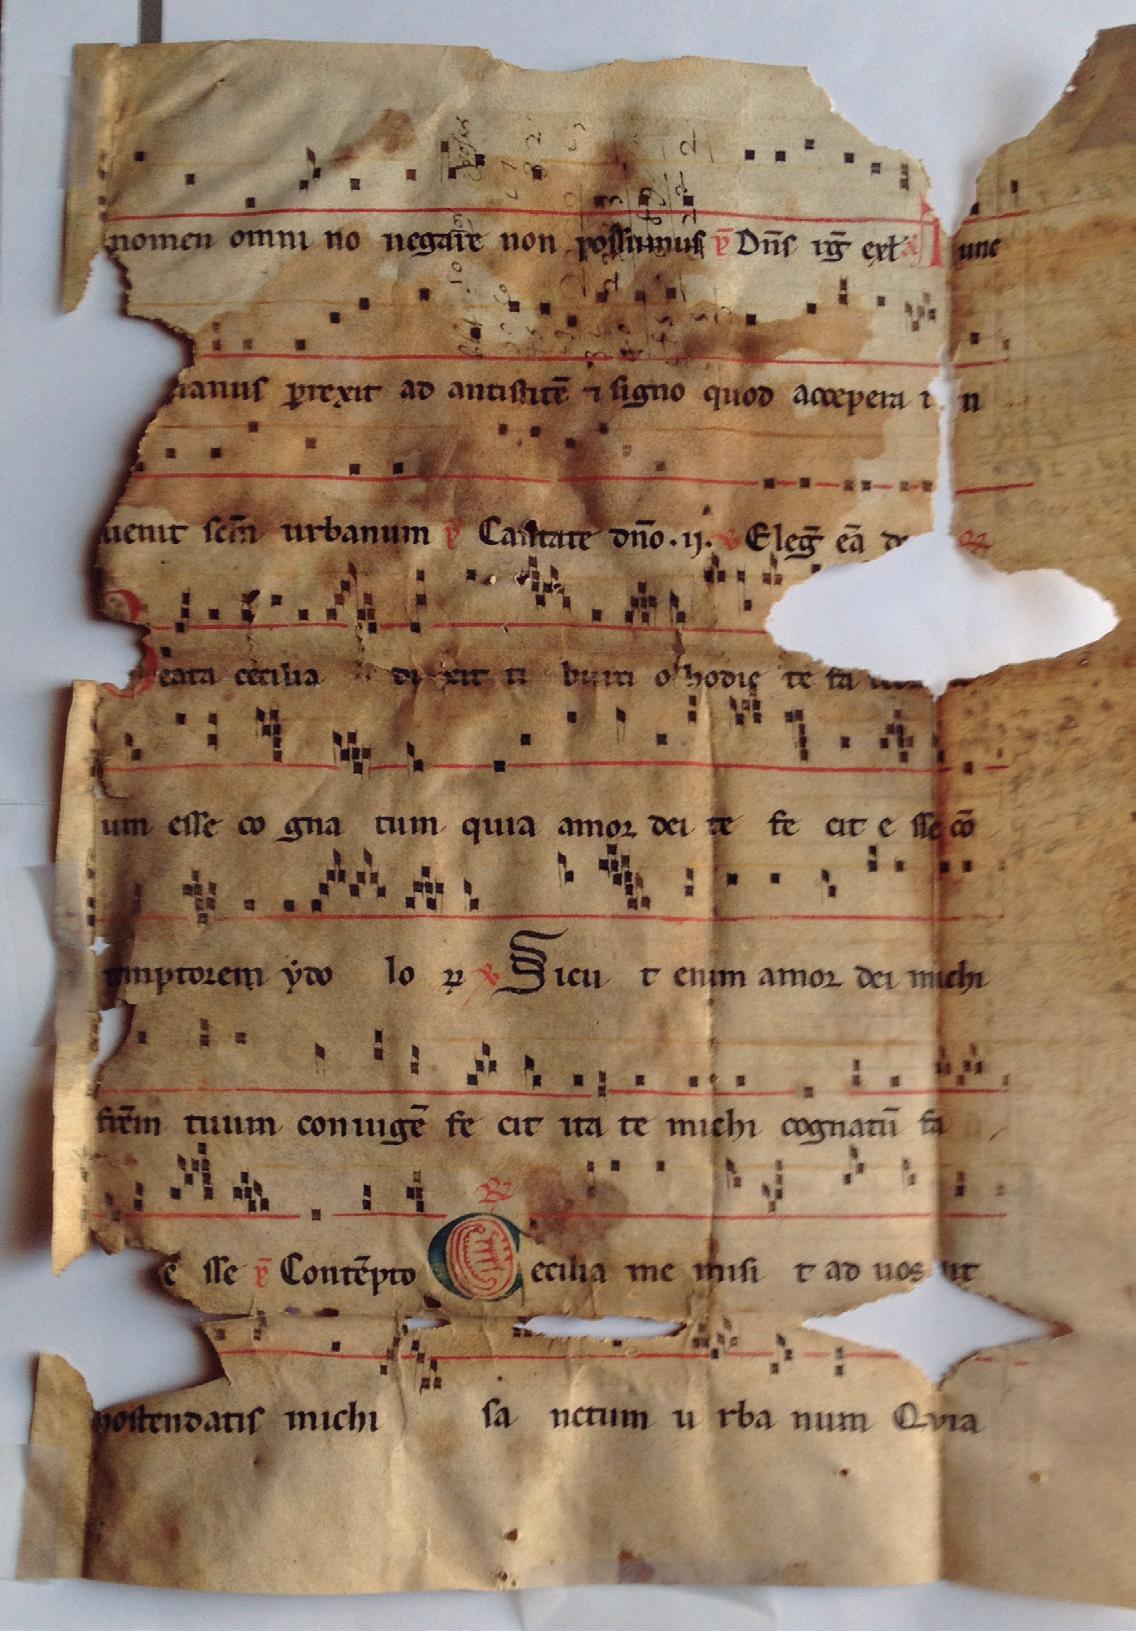 nomen omni no negare non possumus ℣ Dn̄s ig̅ exl̅ a Tunc
ianus ꝑrexit ad antistitē ⁊ signo quod acceperat in
uenit sc̄m urbanum ℣ Cantate dn̄o .ij. ℣ Eleg̅ eā ℟
Beata cecilia di xit ti burti o hodie te fa
um esse co gna tum quia amor dei te fe cit e sse cō
mptorem ydo lo ꝝ ℣ Sicu t enim amor dei michi
fr̄em tuum coniugē fe cit ita te michi cognatū fa
e sse ℣ Contēpto ℟ Cecilia me misi t ad uos ut
hostendatis michi sa nctum u rba num Quia